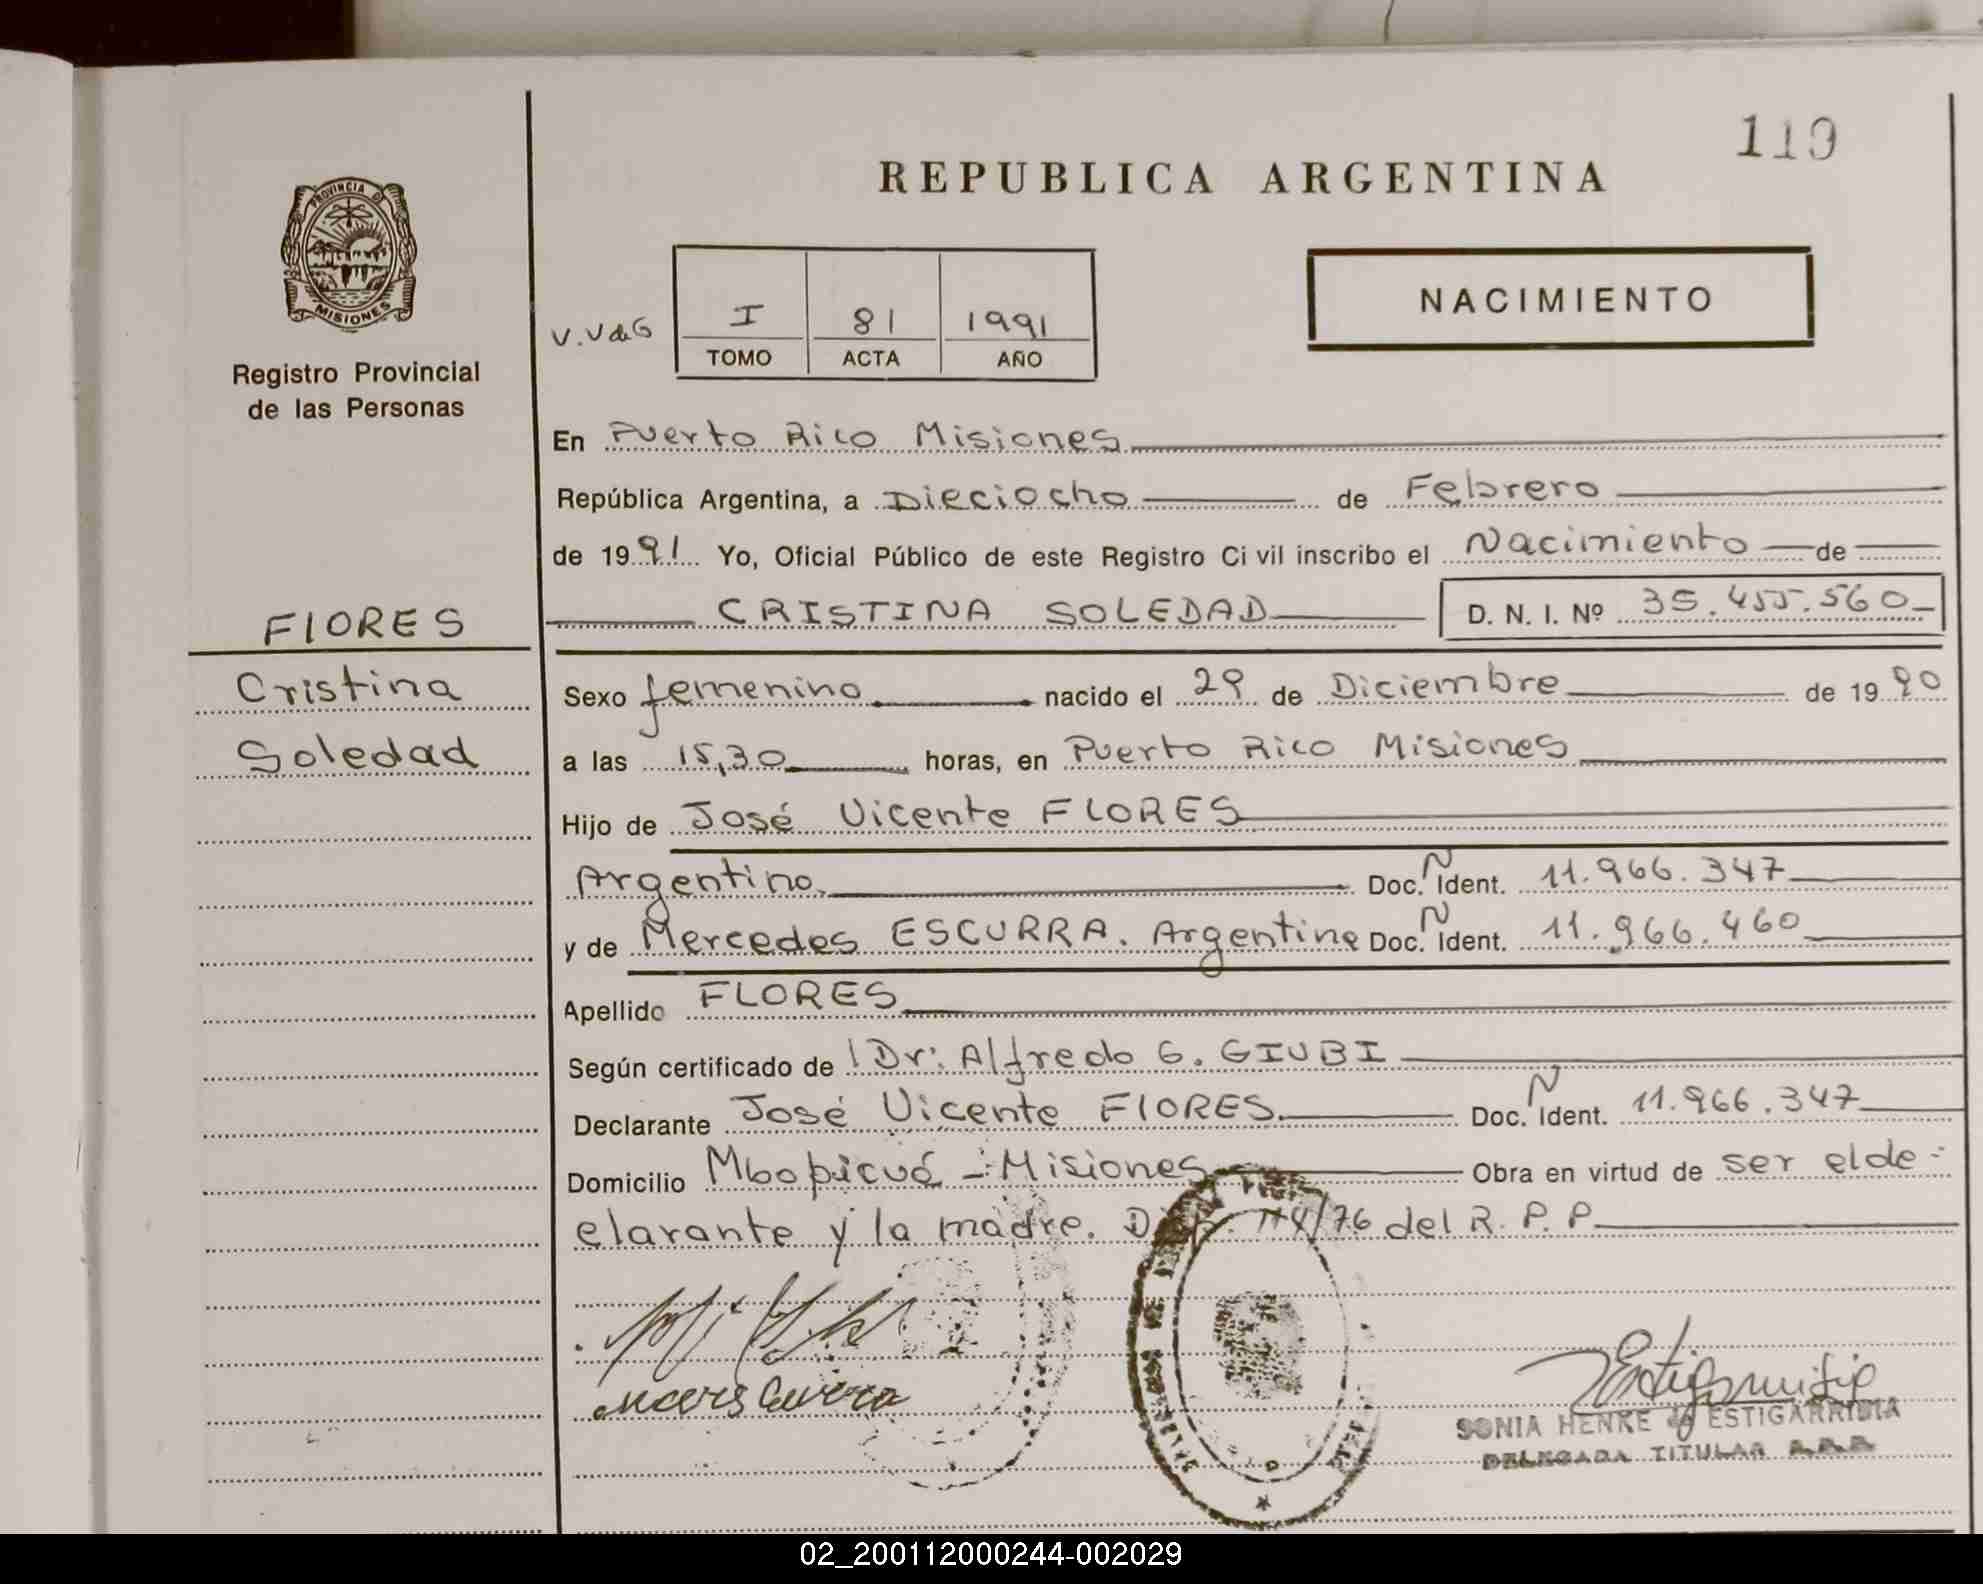 119
REPUBLICA ARGENTINA
PROVINCIA DE
MISIONES
NACIMIENTO
V.V de G
I 81 1991
TOMO ACTA AÑO
Registro Provincial
de las Personas
En Puerto Rico Misiones
República Argentina, a Dieciocho de Febrero
de 1991 Yo, Oficial Público de este Registro Civil inscribo el Nacimiento de
CRISTINA SOLEDAD D. N. I. Nº 35.455.560
FlORES
Cristina
Soledad
Sexo femenino nacido el 29 de Diciembre de 1990
a las 15,30 horas, en Puerto Rico Misiones
Hijo de José Vicente FLORES
Argentino. Doc. N Ident. 11.966.347
y de Mercedes ESCURRA. Argentina Doc. N Ident. 11.966.460
Apellido FLORES
Según certificado de Dr: Alfredo G. GIUBI
Declarante José Vicente FlORES. Doc. N Ident. 11.966.347
Domicilio Mbopicuá - Misiones Obra en virtud de ser el de-
clarante y la madre. 114/76 del R. P. P
SONIA HENKE de ESTIGARRIBIA
DELEGADA TITULAR R.P.P.
02_200112000244-002029